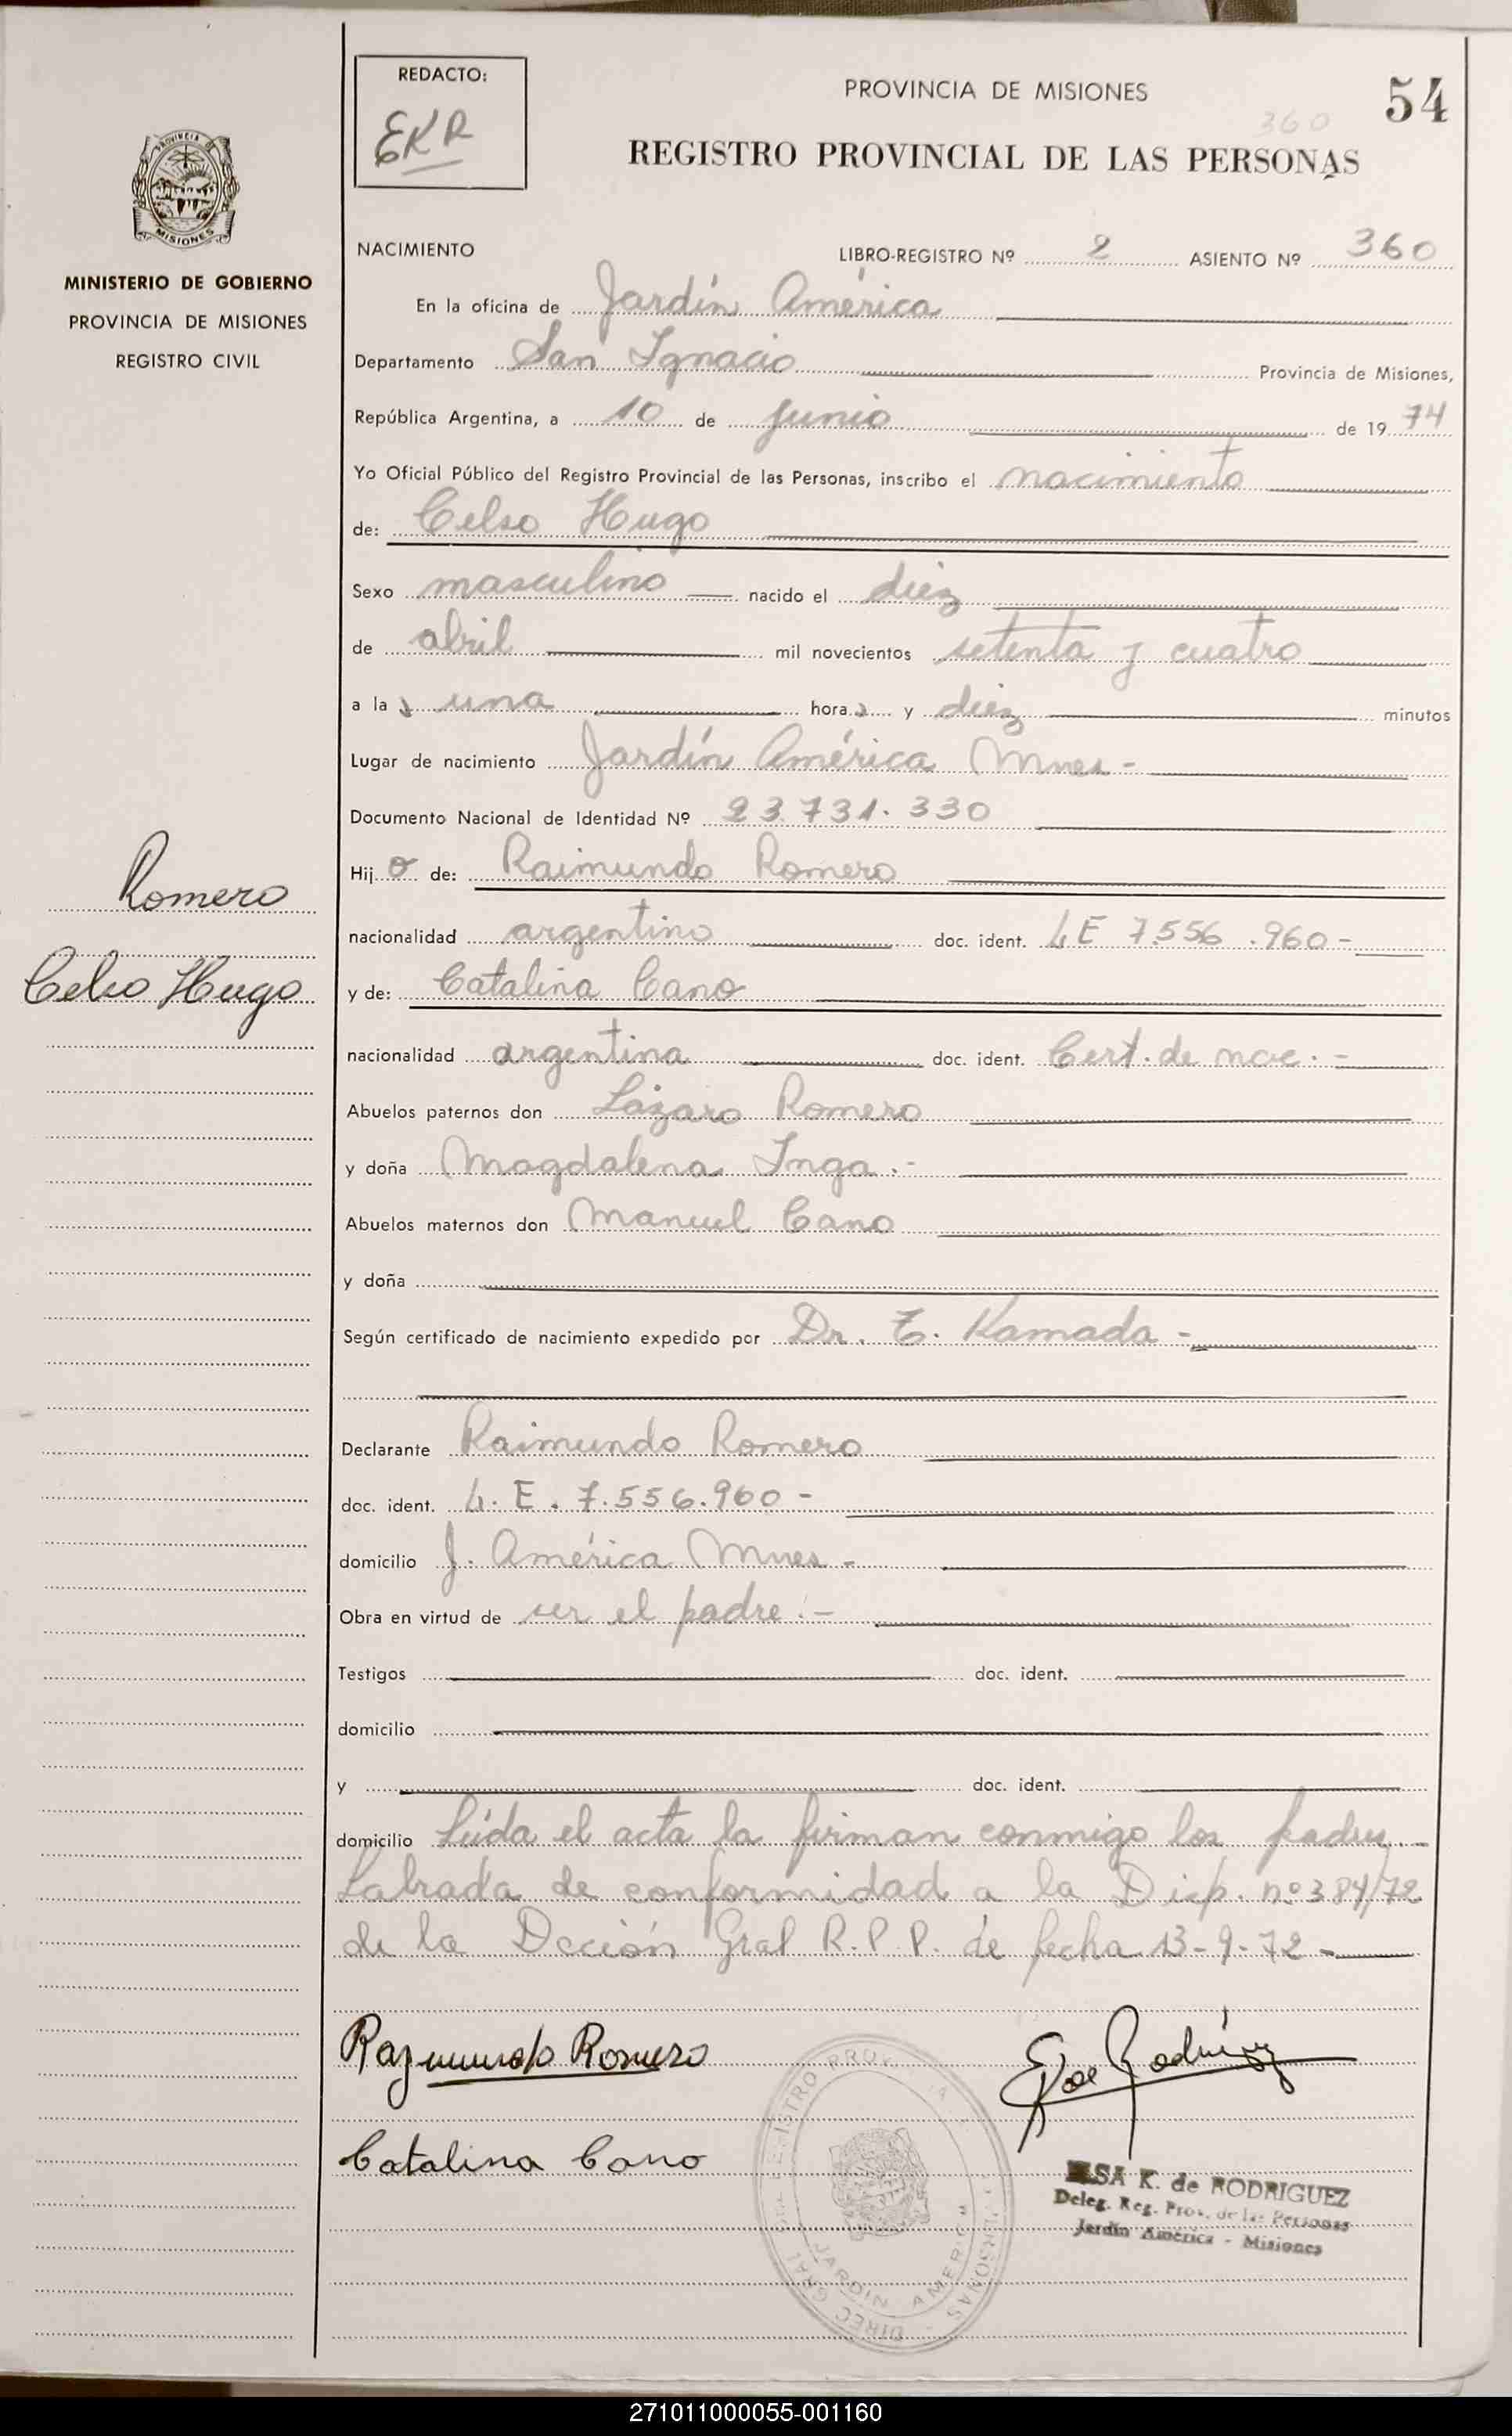 REDACTO:
EKR
PROVINCIA DE MISIONES
54
360
REGISTRO PROVINCIAL DE LAS PERSONAS
PROVINCIA DE
MISIONES
MINISTERIO DE GOBIERNO
PROVINCIA DE MISIONES
REGISTRO CIVIL
NACIMIENTO LIBRO-REGISTRO Nº 2 ASIENTO Nº 360
En la oficina de Jardín América
Departamento San Ignacio Provincia de Misiones,
República Argentina, a 10 de junio de 1974
Yo Oficial Público del Registro Provincial de las Personas, inscribo el nacimiento
de: Celso Hugo
Sexo masculino nacido el diez
de abril mil novecientos setenta y cuatro
a la s una hora s y diez minutos
Lugar de nacimiento Jardín América Mnes -
Documento Nacional de Identidad Nº 23.731.330
Romero
Hijo de: Raimundo Romero
nacionalidad argentino doc. ident. LE 7.556.960-
Celso Hugo
y de: Catalina Cano
nacionalidad argentina doc. ident. Cert. de nac. -
Abuelos paternos don Lázaro Romero
y doña Magdalena Inga.-
Abuelos maternos don Manuel Cano
y doña
Según certificado de nacimiento expedido por Dr. T. Kamada -
Declarante Raimundo Romero
doc. ident. L.E. 7.556.960-
domicilio J. América Mnes -
Obra en virtud de ser el padre.-
Testigos doc. ident.
domicilio
y doc. ident.
domicilio Leída el acta la firman conmigo los padres.-
Labrada de conformidad a la Disp. nº 384/72
de la Dcción Gral R.P.P. de fecha 13-9-72 -
Raymundo Romero
Catalina Cano
JARDIN AMERICA
DIREC GRAL
ELSA K. de RODRIGUEZ
Deleg. Reg. Prov. de las Personas
Jardín América - Misiones
271011000055-001160